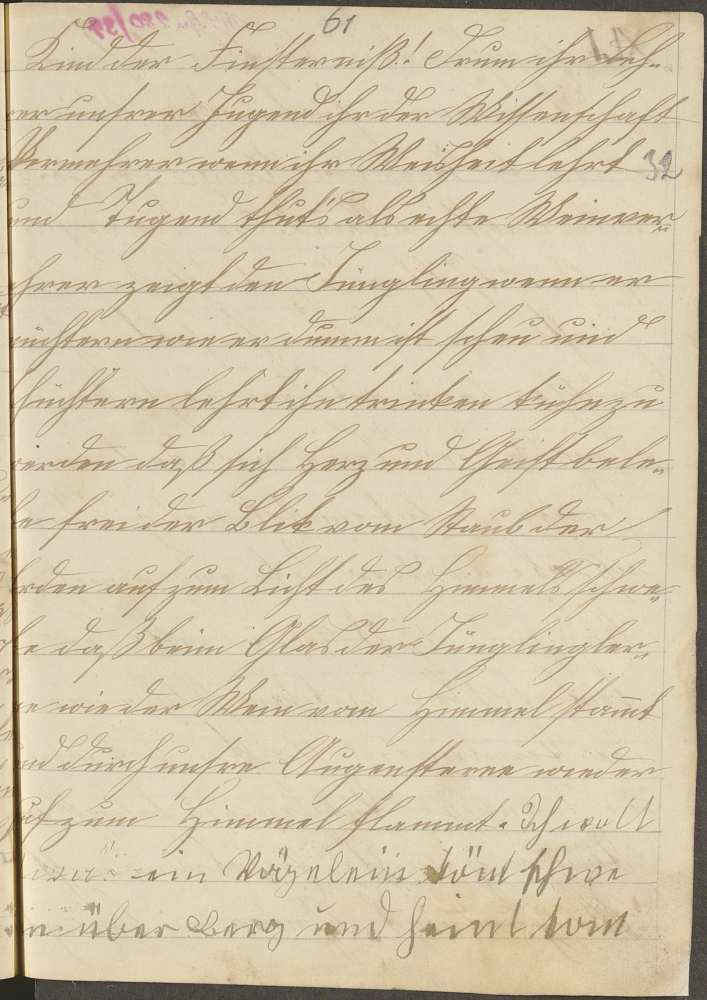 61
Kind der Finsterniß! Drum ihr Leh-
rer unsrer Jugend ihr der Wissenschaft
Vermehrer wenn ihr Weisheit lehrt 32
und Tugend thut's als echte Weinver-
ehrer zeigt den Jüngling wenn er
nüchtern wie er dumm ist scheu und
schüchtern lehrt ihn trinken kühn zu
werden daß sich Herz und Geist bele-
be frei der Blik vom Staub der
Erden auf zum Licht des Himmels schwe-
be daß beim Glas der Jüngling ler-
ne wie der Wein vom Himmel stamt
und durch unsre Augensterne wieder
auf zum Himmel flammt. Ich wollt
ein Vögelein könt schwe
über Berg und